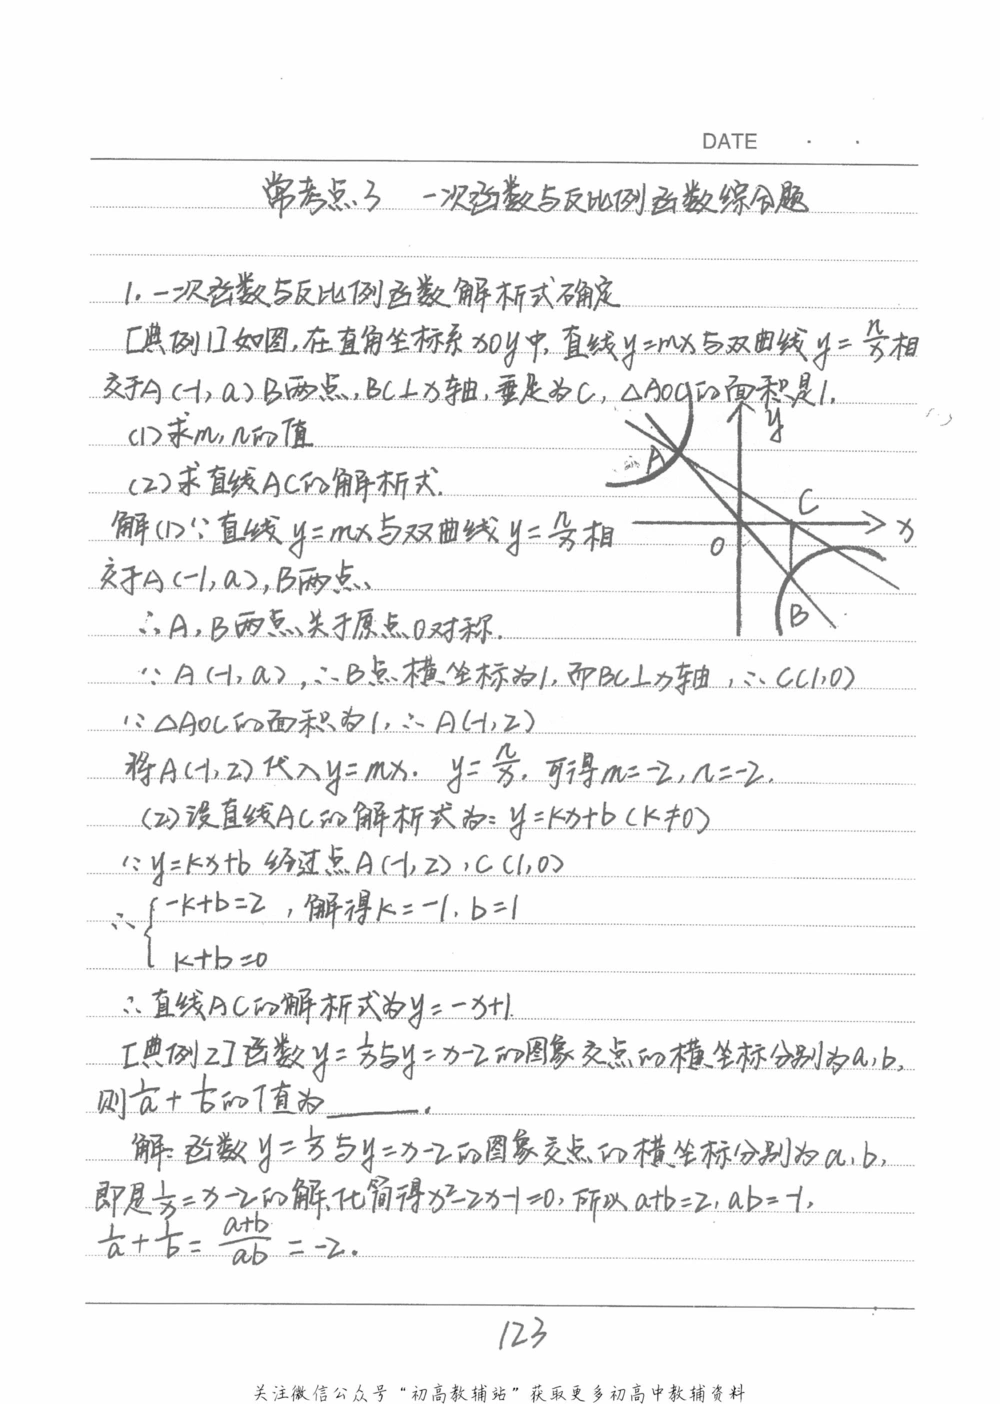 DATE · ·
常考点3 一次函数与反比例函数综合题
1. 一次函数与反比例函数解析式确定
[典例1]如图,在直角坐标系xOy中,直线y=mx与双曲线y=n/x相
交于A(-1,a)B两点,BC⊥x轴,垂足为C,△AOC的面积是1.
(1)求m,n的值
(2)求直线AC的解析式.
y
A
C
x
O
B
解(1)∵直线y=mx与双曲线y=n/x相
交于A(-1,a),B两点、
∴A,B两点关于原点O对称.
∵A(-1,a),∴B点横坐标为1,而BC⊥x轴,∴C(1,0)
∵△AOC的面积为1,∴A(-1,2)
将A(-1,2)代入y=mx. y=n/x,可得m=-2,n=-2.
(2)设直线AC的解析式为:y=kx+b(k≠0)
∵y=kx+b 经过点A(-1,2),C(1,0)
∴{-k+b=2 ,解得k=-1,b=1
k+b=0
∴直线AC的解析式为y=-x+1.
[典例2]函数y=1/x与y=x-2的图象交点的横坐标分别为a,b,
则1/a+1/b的值为______.
解:函数y=1/x与y=x-2的图象交点的横坐标分别为a,b,
即是1/x=x-2的解,化简得x²-2x-1=0,所以a+b=2,ab=-1,
1/a+1/b=(a+b)/ab=-2.
123
关注微信公众号“初高教辅站”获取更多初高中教辅资料